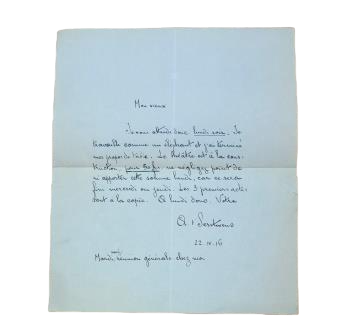 Mon vieux
Je vous attends donc lundi soir. Je
travaille comme un éléphant et j'ai terminé
mes projets de l'. Le théâtre est à la cons-
truction, pour . ne négligez point de
m'apporter cette somme lundi, car ce sera
fini mercredi ou jeudi. Les 3 premiers actes
sont à la copie. À lundi donc. Votre
A. t'Serstevens
22.IV.16
Mardi, réunion générale chez moi